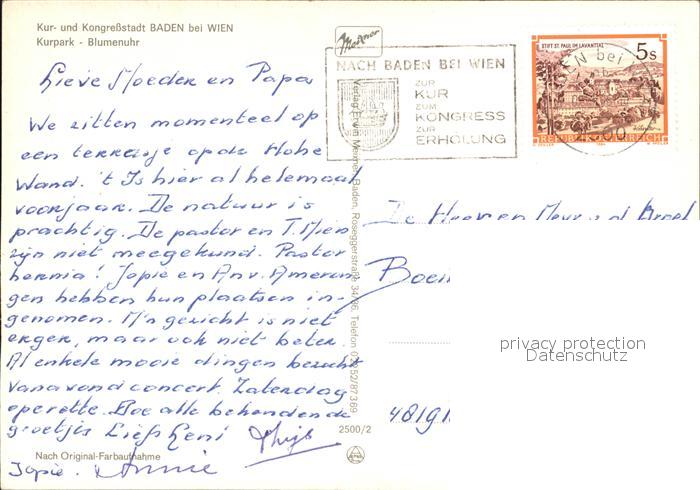 Kur- und Kongreßstadt BADEN bei WIEN
Kurpark - Blumenuhr
Lieve Moeder en Papa
We zitten momenteel op
een terrasje op de Hohe
Wand. 't Is hier al helemaal
voorjaar. De natuur is
prachtig. De pastor en T. Mien
zijn niet meegekund. Pastor
hernia! Jopie en Anv. Ameron
gen hebben hun plaatsen in-
genomen. M'n gezicht is niet
erger, maar ook niet beter.
Al enkele mooie dingen bezocht
Vanavond concert. Zaterdag
operette. Doe alle bekenden de
groetjes Liefs Leni Thijs
Jopie. Annie
Nach Original-Farbaufnahme
2500/2
Verlag Erwin Mexner, Baden, Roseggerstraße 34/36, Telefon 02252/87369
Mexner
NACH BADEN BEI WIEN
ZUR
KUR
ZUM
KONGRESS
ZUR
ERHOLUNG
STIFT ST. PAUL IM LAVANTTAL
5s
REPUBLIK ÖSTERREICH
De Heer en Mevr.
Boer
4819
privacy protection
Datenschutz